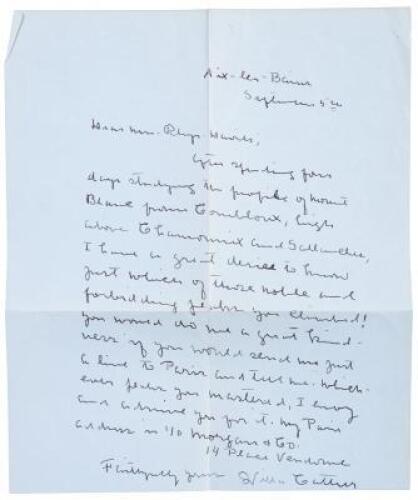 Aix-les-Bains
September 5th
Dear Mrs. Rhys-Davids,
After spending four
days studying the profile of Mount
Blanc from Combloux, high
above Chamounix and Sallanches,
I have a great desire to know
just which of those noble and
forbidding peaks you climbed!
you would do me a great kind-
ness if you would send me just
a line to Paris and tell me. Which-
ever peaks you mastered, I envy
and admire you for it. My Paris
address is % Morgan & Co.
14 Place Vendome
Faithfully yours Willa Cather